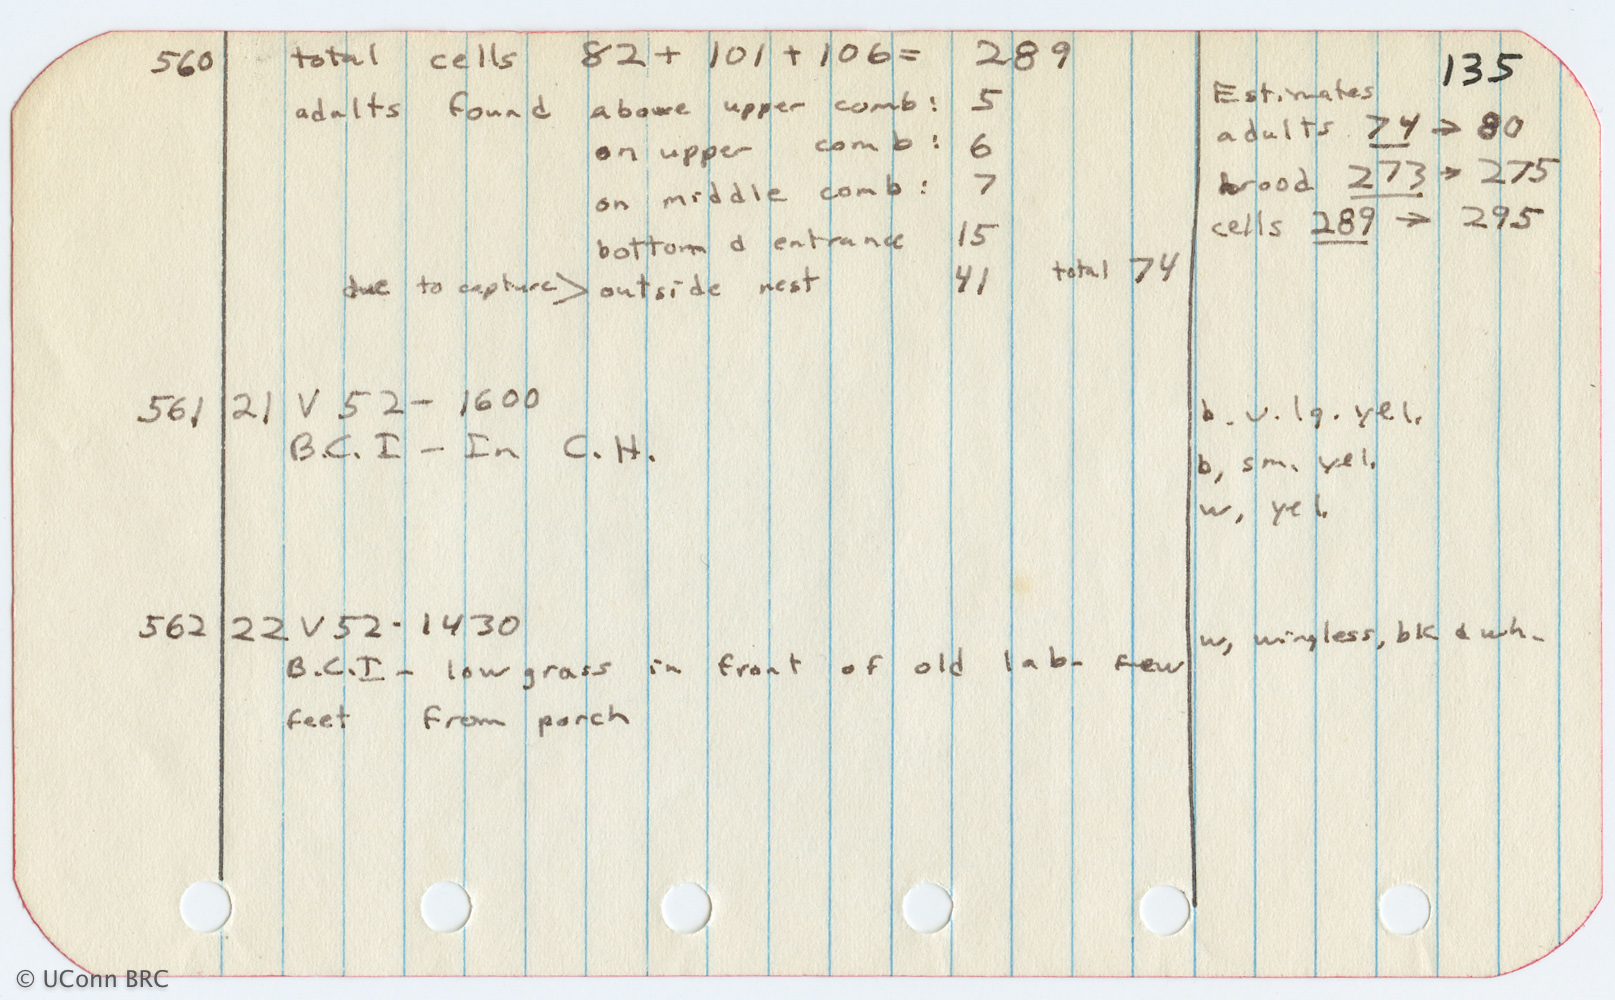 135
560 total cells 82 + 101 + 106 = 289
adults found above upper comb: 5
on upper comb: 6
on middle comb: 7
bottom & entrance 15
due to capture > outside nest 41 total 74
Estimates
adults 74 → 80
brood 273 → 275
cells 289 → 295
561 21 V 52 - 1600
B.C.I - In C.H.
b. v. lg. yel.
b, sm. yel.
w, yel.
562 22 V 52 - 1430
B.C.I - low grass in front of old lab - few
feet from porch
w, wingless, bk & wh-
© UConn BRC